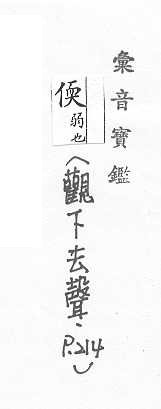 彙音寶鑑
偄
弱也
(觀下去聲、P.214)